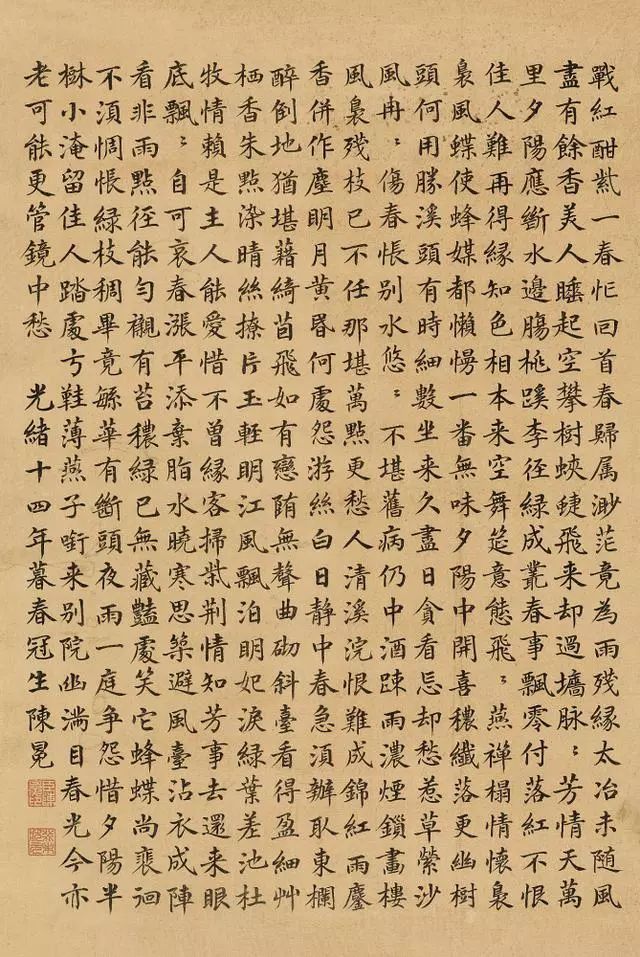 戰紅酣紫一春忙回首春歸属渺茫竟為雨残緣太冶未随風
盡有餘香美人睡起空攀樹蛺蝶飛来却過墻脉〻芳情天萬
里夕陽應斷水邊膓桃蹊李徑綠成叢春事飄零付落紅不恨
佳人難再得緣知色相本来空舞筵意態飛〻燕禅榻情懷裊
裊風蝶使蜂媒都懶慢一番無味夕陽中開喜穠纖落更幽樹
頭何用勝溪頭有時細數坐来久盡日貪看忘却愁惹草縈沙
風冉〻傷春悵别水悠〻不堪舊病仍中酒踈雨濃煙鎖畫樓
風裊残枝已不任那堪萬點更愁人清溪浣恨難成錦紅雨鏖
香併作塵眀月黄昬何處怨游絲白日静中春急湏辦取東欄
醉倒地猶堪藉綺茵飛如有戀随無聲曲砌斜臺看得盈細艸
栖香朱點染晴絲撩片玉輕明江風飄泊明妃淚綠葉差池杜
牧情賴是主人能愛惜不曾緣客掃柴荆情知芳事去還来眼
底飄〻自可哀春漲平添棄脂水曉寒思築避風臺沾衣成陣
看非雨點徑能勻襯有苔穠綠已無藏豔處笑它蜂蝶尚裵徊
不湏惆悵綠枝稠畢竟緐華有斷頭夜雨一庭争怨惜夕陽半
林小淹留佳人踏處弓鞋薄燕子啣来别院幽满目春光今亦
老可能更管鏡中愁 光緒十四年暮春冠生陳冕